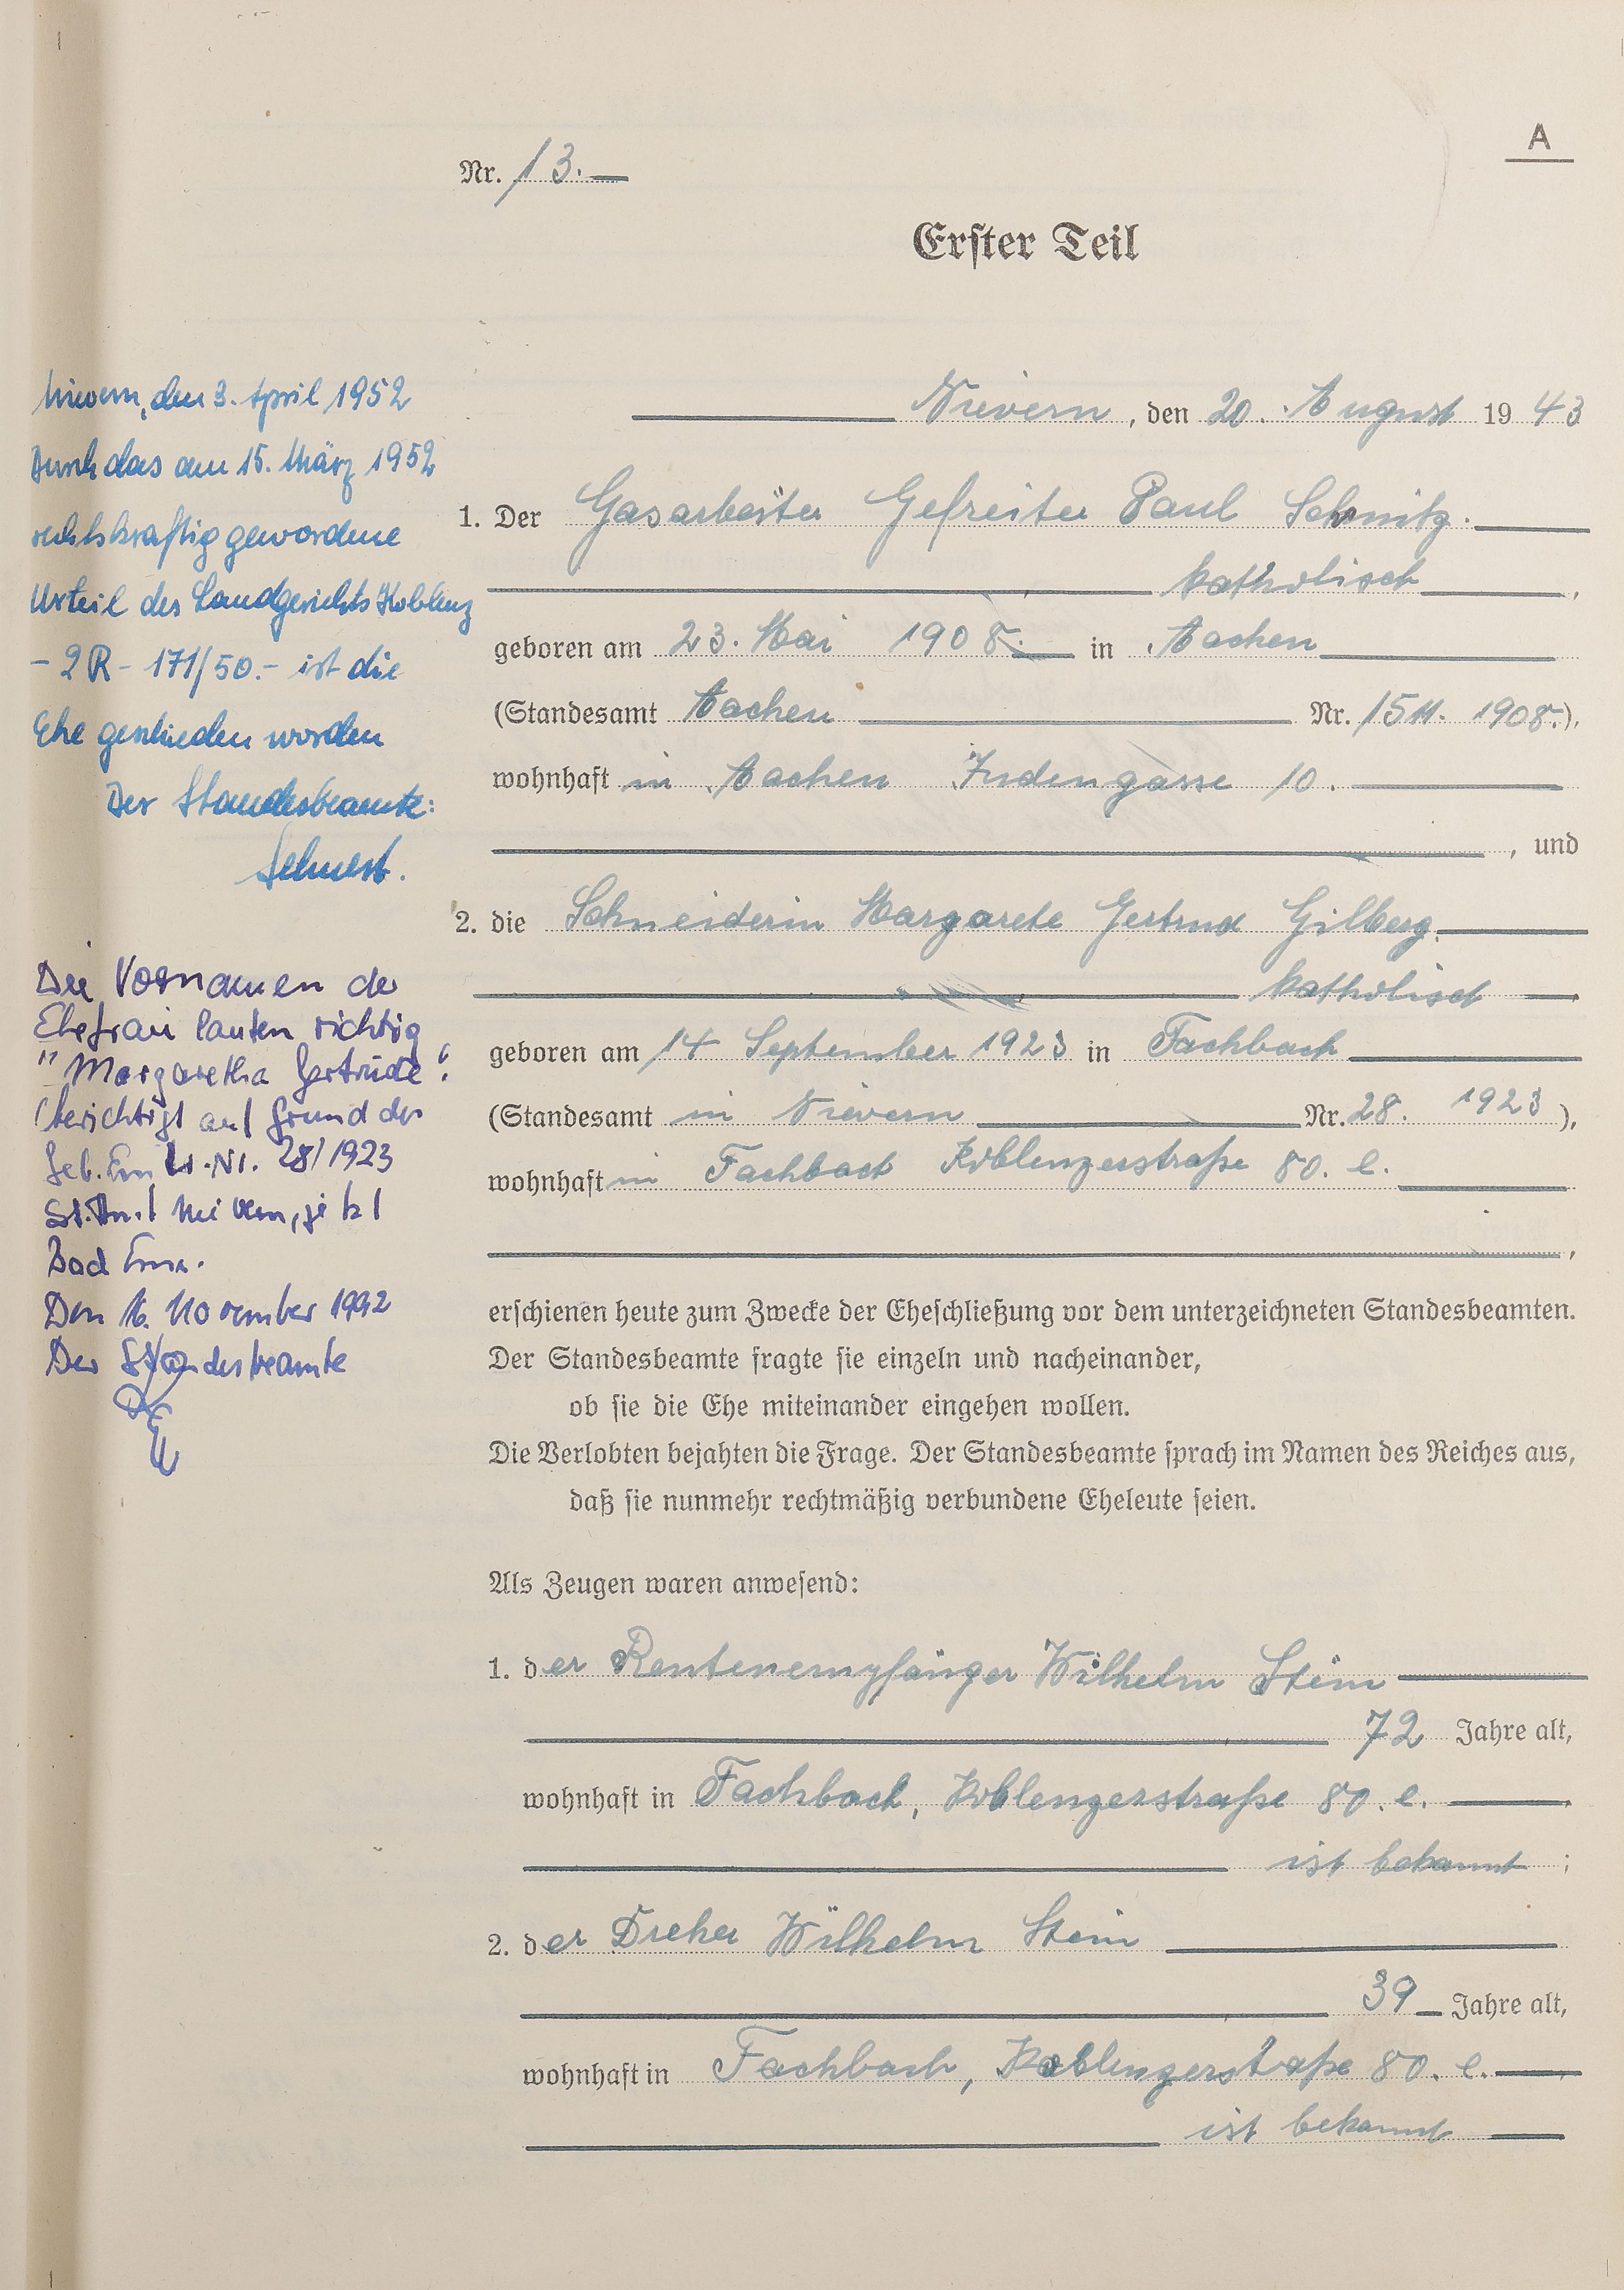 A
Nr. 13.
Erster Teil
Nievern, den 20. August 1943
1. Der Gasarbeiter Gefreiter Paul Schmitz.
katholisch,
geboren am 23. Mai 1908. in Aachen
(Standesamt Aachen Nr. 1511. 1908.),
wohnhaft in Aachen Judengasse 10.
, und
2. die Schneiderin Margarete Gertrud Gilberg.
katholisch
geboren am 14 September 1923 in Fachbach
(Standesamt in Nievern Nr. 28. 1923),
wohnhaft in Fachbach Koblenzerstraße 80. e.
,
erschienen heute zum Zwecke der Eheschließung vor dem unterzeichneten Standesbeamten.
Der Standesbeamte fragte sie einzeln und nacheinander,
ob sie die Ehe miteinander eingehen wollen.
Die Verlobten bejahten die Frage. Der Standesbeamte sprach im Namen des Reiches aus,
daß sie nunmehr rechtmäßig verbundene Eheleute seien.
Als Zeugen waren anwesend:
1. der Rentenempfänger Wilhelm Stein
72 Jahre alt,
wohnhaft in Fachbach, Koblenzerstraße 80. e.
ist bekannt;
2. der Dreher Wilhelm Stein
39 Jahre alt,
wohnhaft in Fachbach, Koblenzerstraße 80. e.
ist bekannt
Nievern, den 3. April 1952
Durch das am 15. März 1952
rechtskräftig gewordene
Urteil des Landgerichts Koblenz
- 2 R - 171/50.- ist die
Ehe geschieden worden
Der Standesbeamte:
Die Vornamen der
Ehefrau lauten richtig
"Margaretha Gertrude".
(berichtigt auf Grund des
Geb. Eintr. Nr. 28/1923
St.Amt Nievern, jetzt
Bad Ems.
Den 16. November 1992
Der Standesbeamte